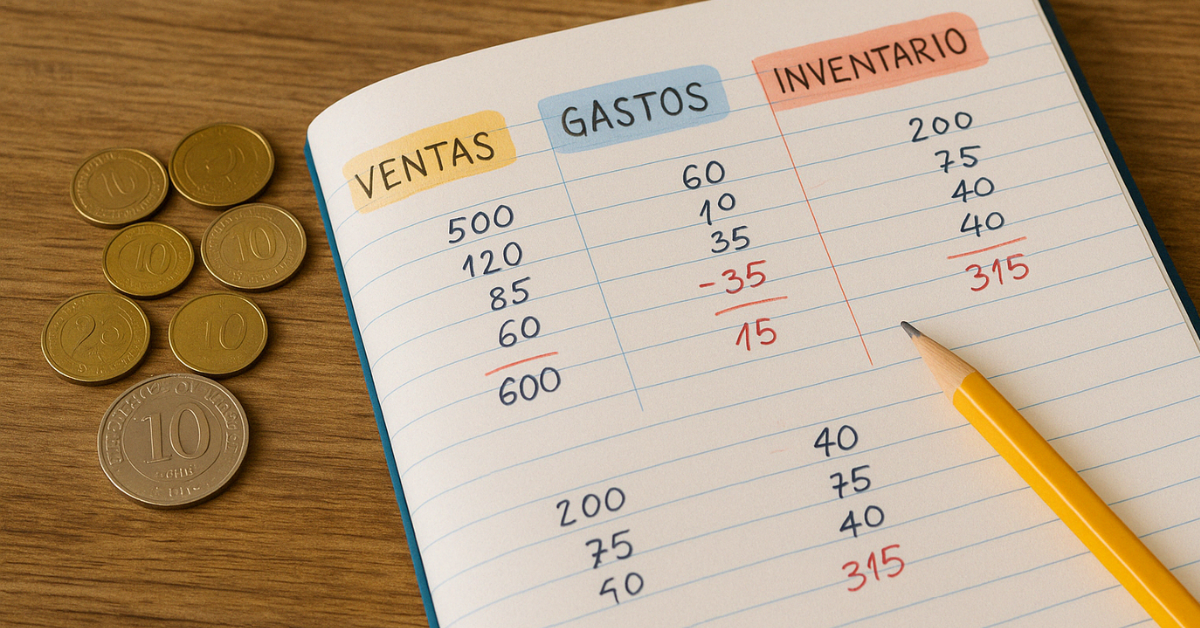 VENTAS
500
120
85
60
600
GASTOS
60
10
35
-35
15
INVENTARIO
200
75
40
40
315
200
75
40
40
75
40
315
10
10
10
10
10